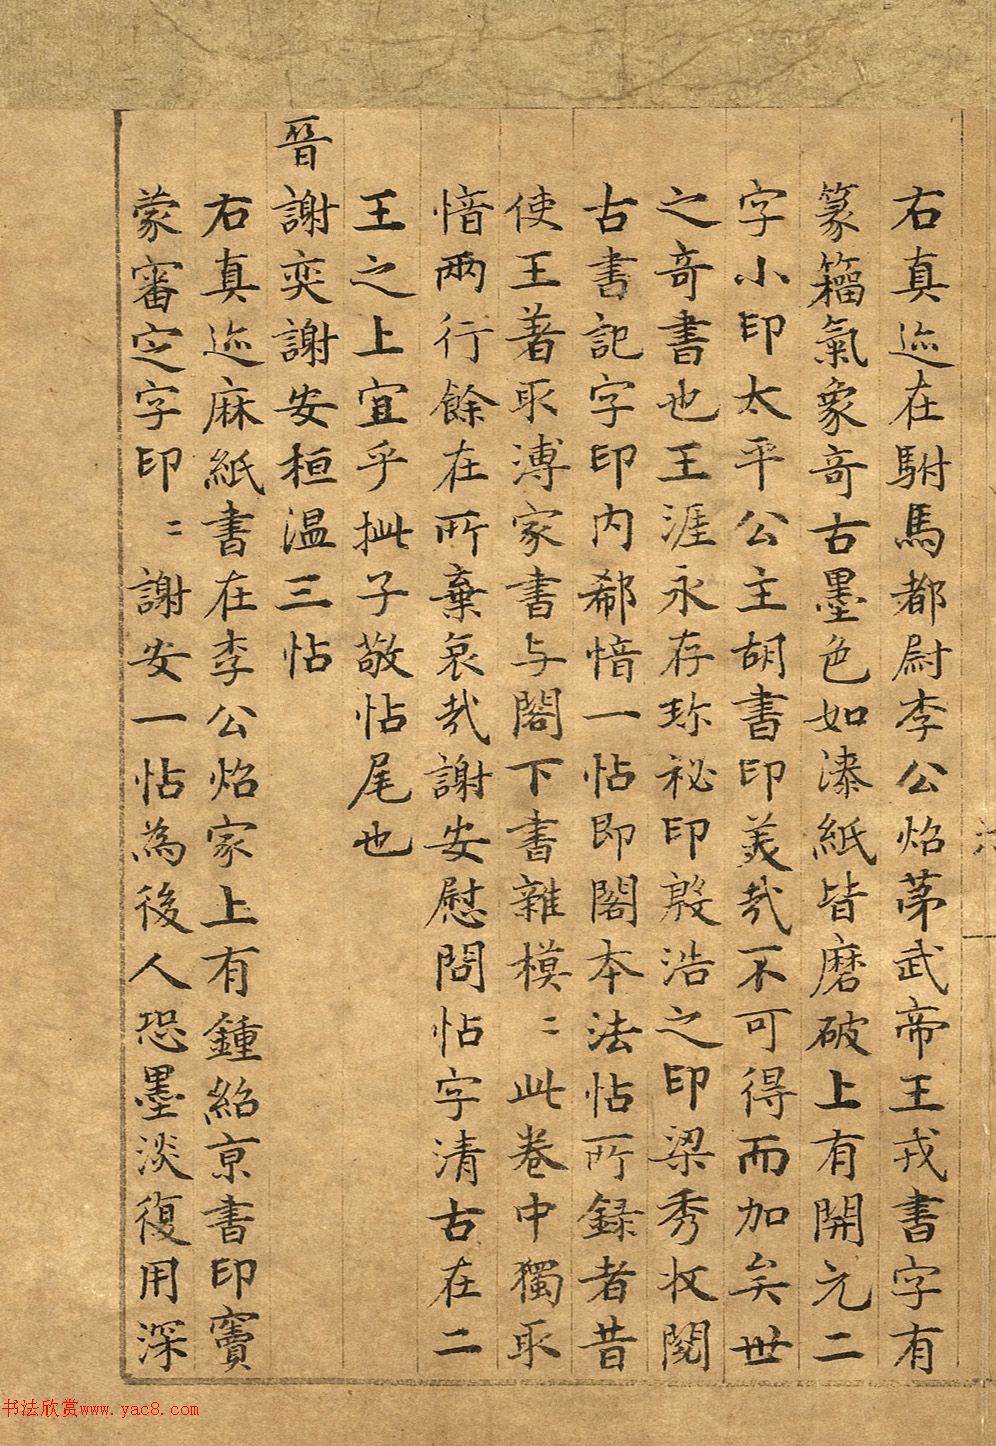 右真迹在駙馬都尉李公炤苐武帝王戎書字有
篆籀氣象奇古墨色如漆紙皆磨破上有開元二
字小印太平公主胡書印美㢤不可得而加矣世
之奇書也王涯永存珎祕印殷浩之印梁秀收閱
古書記字印内郗愔一帖即閣本法帖所録者昔
使王著取溥家書与閣下書雜模〻此卷中獨取
愔兩行餘在所棄哀㢤謝安慰問帖字清古在二
王之上宜乎批子敬帖尾也
晉謝奕謝安桓温三帖
右真迹麻紙書在李公炤家上有鍾紹京書印竇
蒙審定字印〻謝安一帖為後人恐墨淡復用深
书法欣赏www.yac8.com